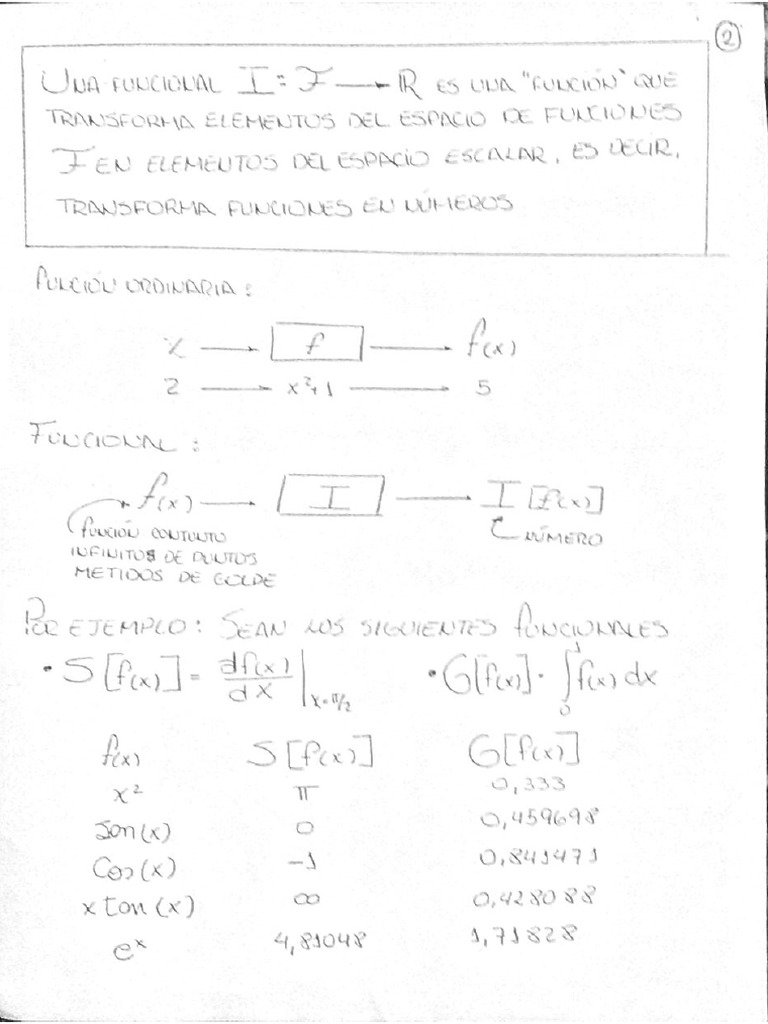 2
UNA FUNCIONAL I: F → R ES UNA "FUNCIÓN" QUE
TRANSFORMA ELEMENTOS DEL ESPACIO DE FUNCIONES
F EN ELEMENTOS DEL ESPACIO ESCALAR, ES DECIR,
TRANSFORMA FUNCIONES EN NÚMEROS
FUNCIÓN ORDINARIA:
x → f → f(x)
2 → x²+1 → 5
FUNCIONAL:
f(x) → I → I[f(x)]
FUNCIÓN CONJUNTO NÚMERO
INFINITOS DE PUNTOS
METIDOS DE GOLPE
POR EJEMPLO: SEAN LOS SIGUIENTES FUNCIONALES
• S[f(x)] = df(x)/dx |x=π/2 • G[f(x)] = ∫₀¹ f(x) dx
f(x) S[f(x)] G[f(x)]
x² π 0,333
Sen(x) 0 0,459698
Cos(x) -1 0,841471
x tan(x) ∞ 0,428088
eˣ 4,81048 1,71828